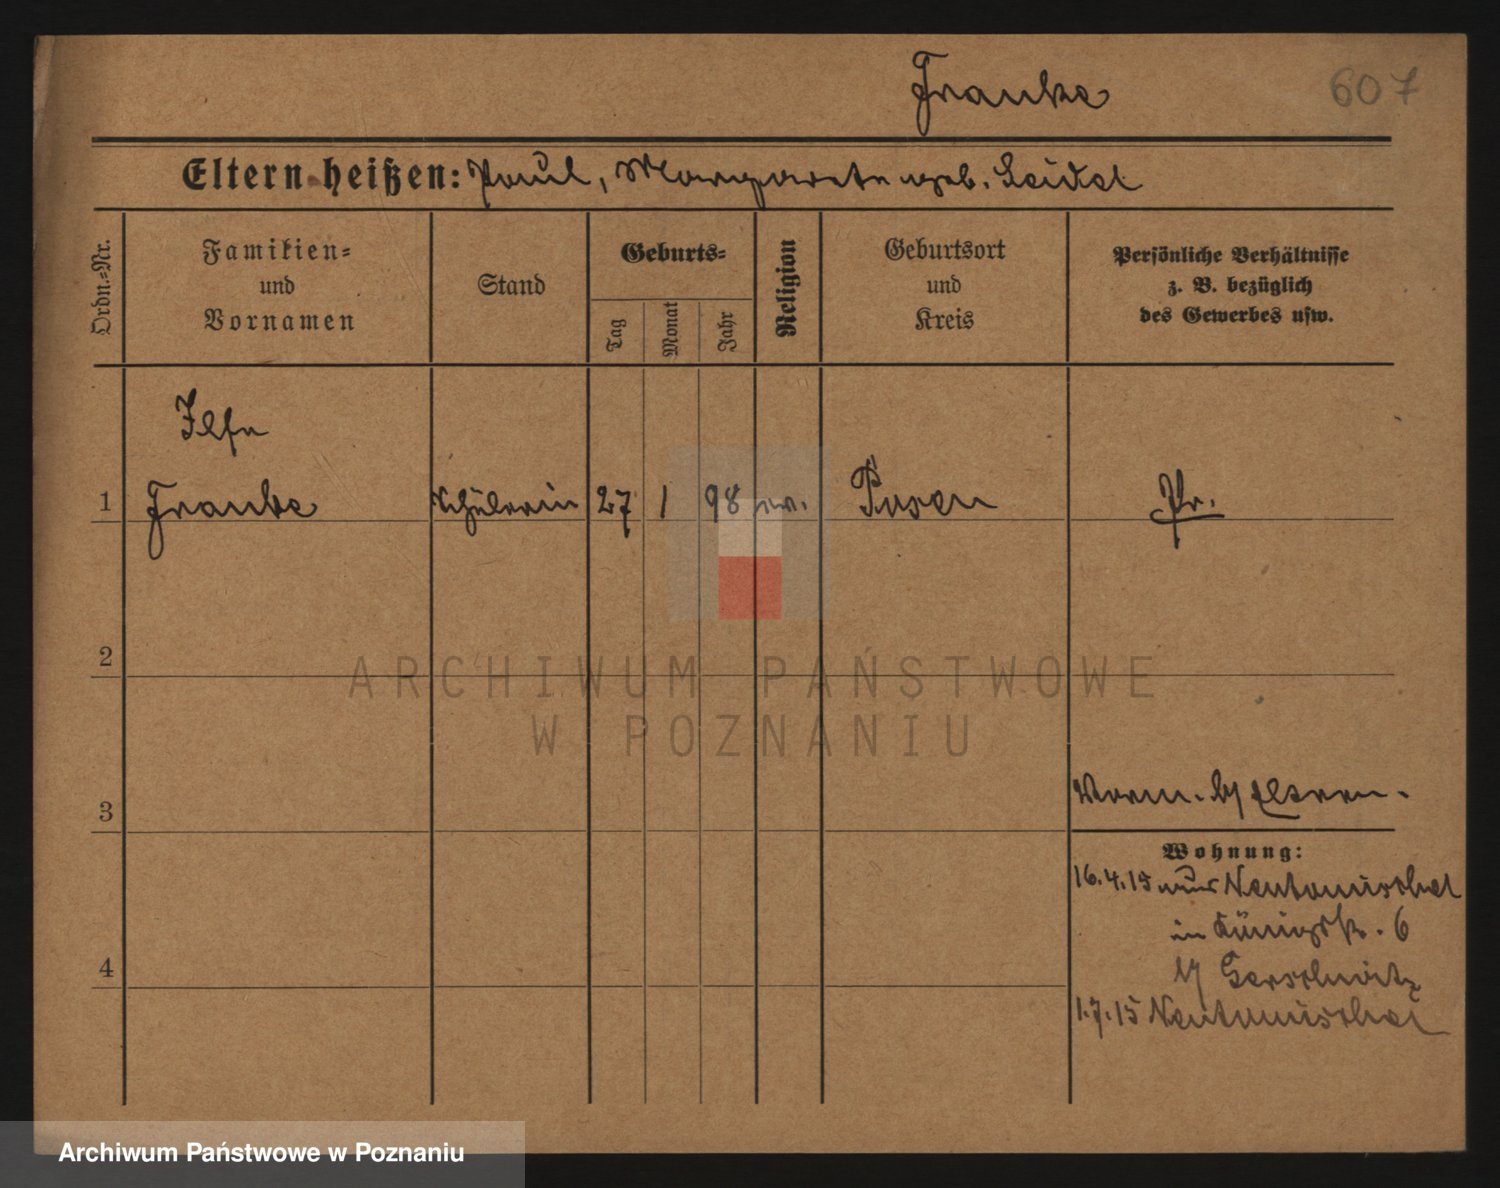 Franke
607
Eltern heißen: Paul, Margarete geb. Seidel
Ordn.-Nr.
Familien-
und
Vornamen
Stand
Geburts-
Tag
Monat
Jahr
Religion
Geburtsort
und
Kreis
Persönliche Verhältnisse
z. B. bezüglich
des Gewerbes usw.
Ilse
1 Franke Schülerin 27 1 98 ev. Posen Pr.
2
3
Vorm. b/ Eltern.
Wohnung:
16.4.15 aus Neutomischel
in Königstr. 6
b/
4
1.7.15 Neutomischel
ARCHIWUM PAŃSTWOWE
W POZNANIU
Archiwum Państwowe w Poznaniu